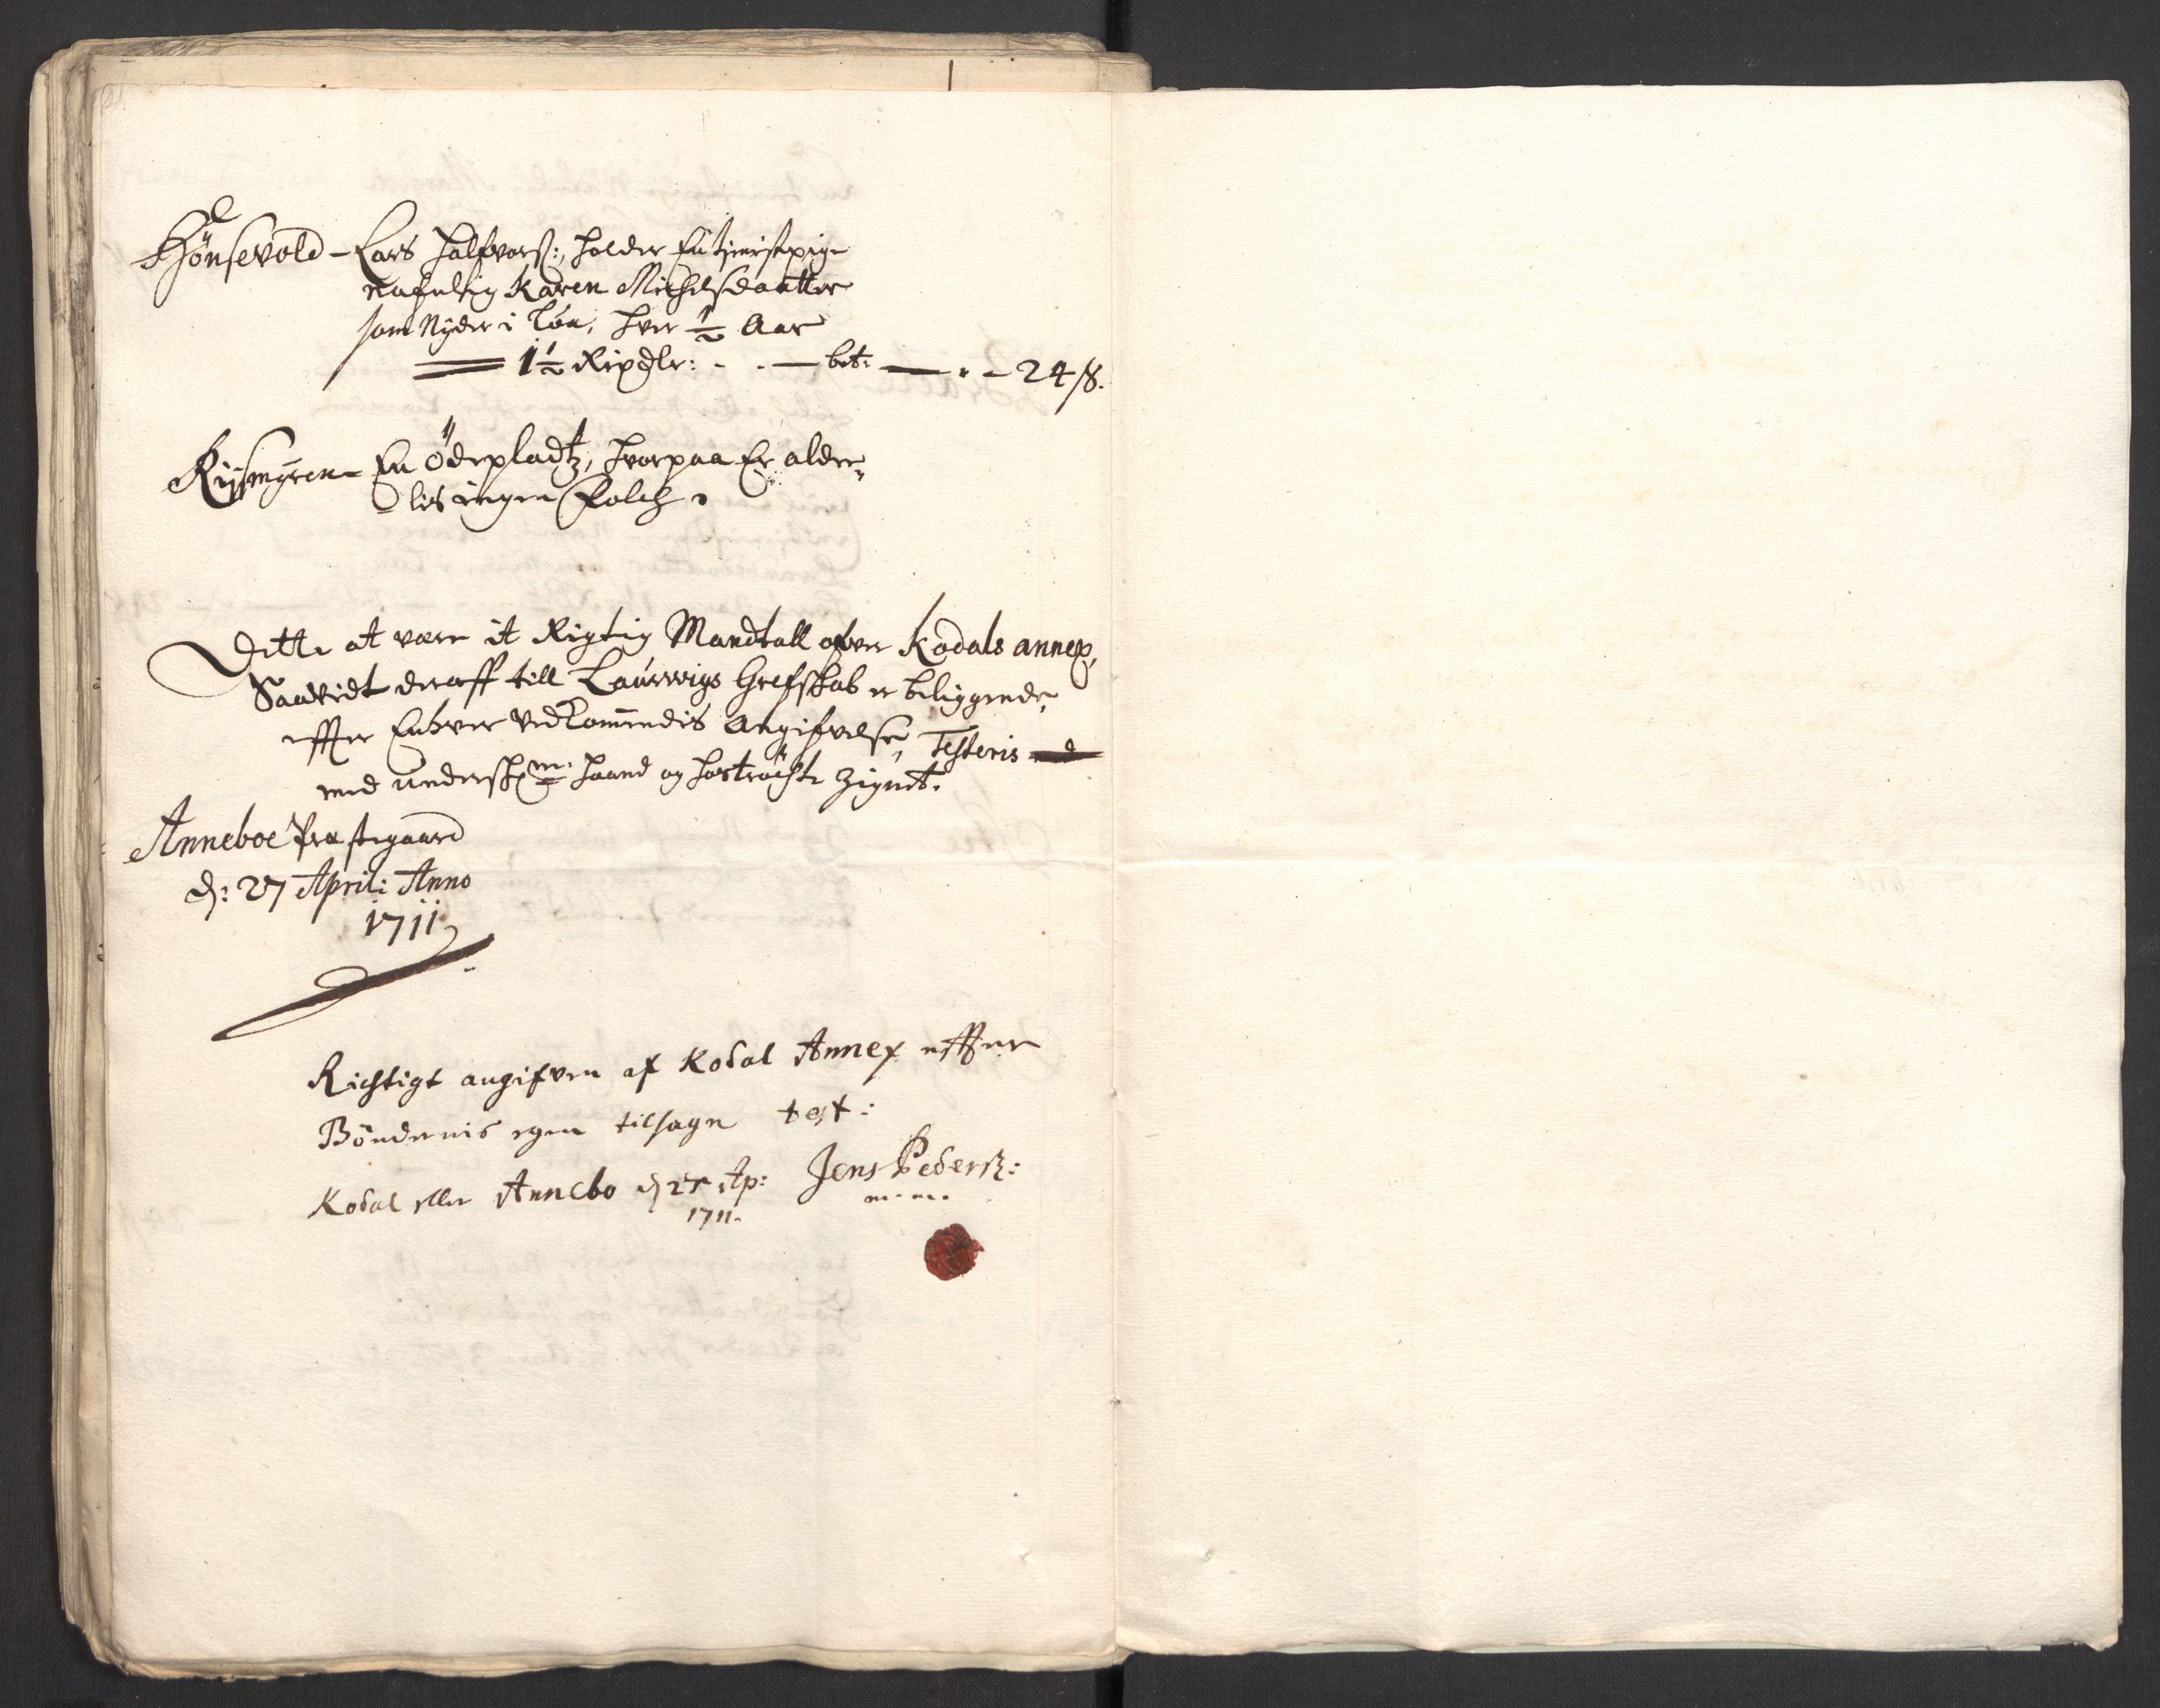 Hönsevold - Lars Halfvorß:, holder En tienistepige
nafnlig Karen Michelsdaatter
som Nyder i Lön, hver ½ Aar
1½ Rixdlr: - - bet: - 24 ß.
Rijsmyren - En ödepladtz, hvorpaa Er alde„
lis ingen Folch.
Dette at være it Rigtig Mandtall ofver Kodals annex,
Saavidt deraff till Laurwigs Grefskab er beliggende,
effter Enhver vedkommendis Angifvelse, Testeris
med undersk: m: haand og hoströchte Zignet.
Anneboe Præstegaard
d: 27 Aprili Anno
1711
Richtigt angifven af Kodal Annex effter
Böndernis egen tilsagn test:
Kodal eller Annebo d 27 Ap: Jens Pederß:
1711. m. m.